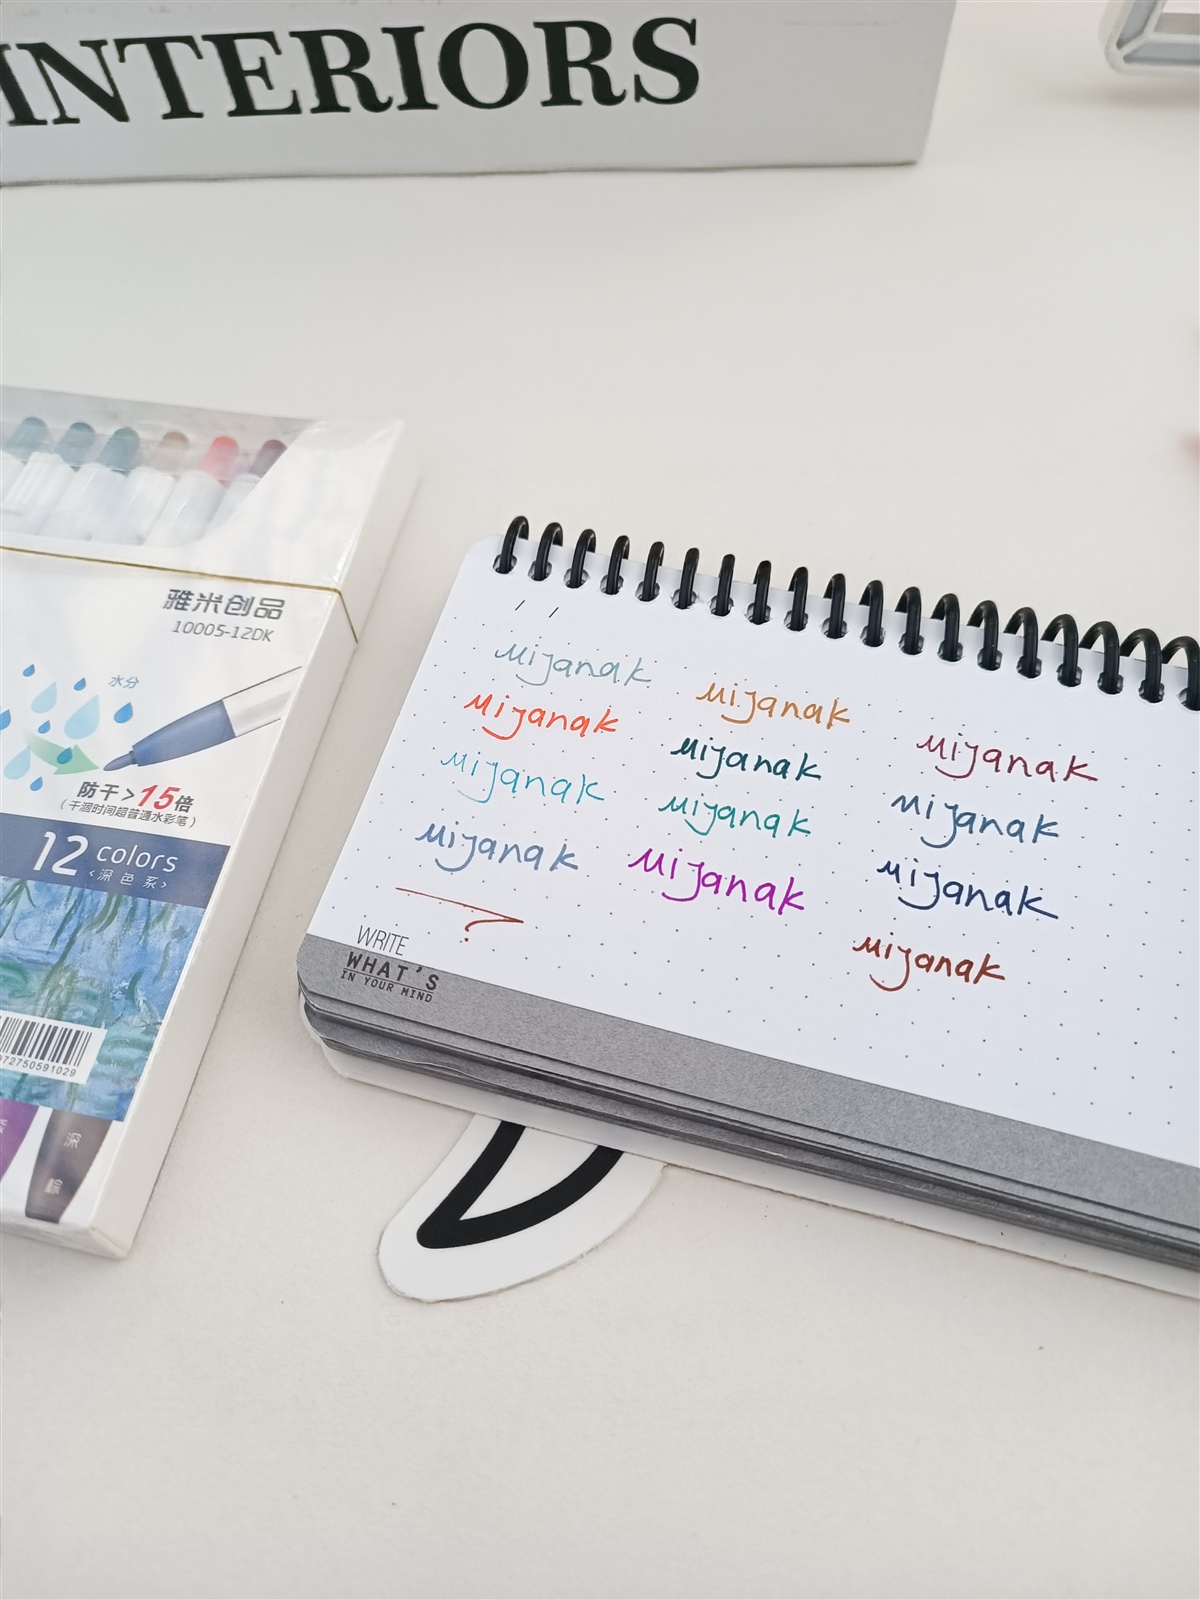 INTERIORS
雅米创品
10005-12DK
水分
防干>15倍
(干涸时间超普通水彩笔)
12 colors
<深色系>
972750591029
深
棕
mijanak
mijanak
mijanak
mijanak
mijanak
mijanak
mijanak
mijanak
mijanak
mijanak
mijanak
mijanak
?
WRITE
WHAT'S
IN YOUR MIND